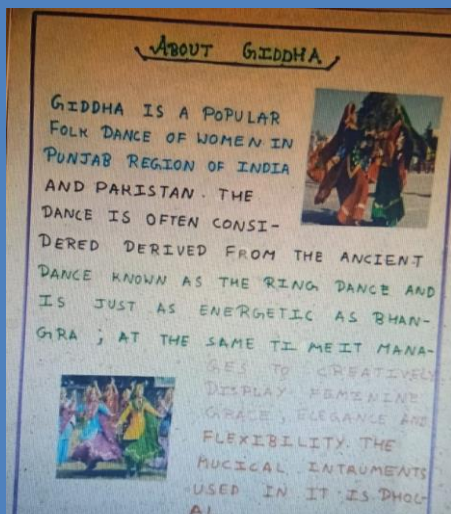 ABOUT GIDDHA
GIDDHA IS A POPULAR
FOLK DANCE OF WOMEN IN
PUNJAB REGION OF INDIA
AND PAKISTAN. THE
DANCE IS OFTEN CONSI-
DERED DERIVED FROM THE ANCIENT
DANCE KNOWN AS THE RING DANCE AND
IS JUST AS ENERGETIC AS BHAN-
GRA ; AT THE SAME TI MEIT MANA-
GES TO CREATIVELY
DISPLAY FEMININE
GRACE, ELEGANCE AND
FLEXIBILITY. THE
MUCICAL INTRUMENTS
USED IN IT IS DHOL-